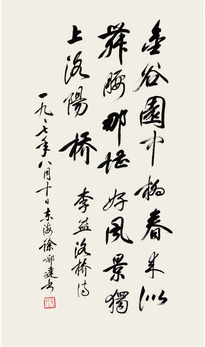 金谷園中柳春來似
舞腰那堪好風景獨
上洛陽橋 李益洛橋诗
一九八七年八月十日东海徐邦達书